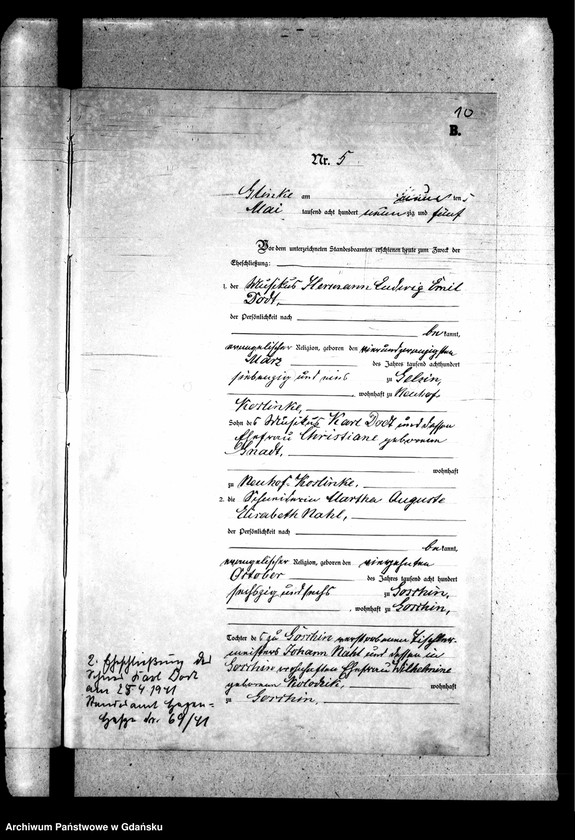 10
B.
Nr. 5
Glinke am
Mai tausend acht hundert neunzig und fünf
Vor dem unterzeichneten Standesbeamten erschienen heute zum Zweck der
Eheschließung:
1. der Musikus Hermann Ludwig Emil
Dodt,
der Persönlichkeit nach
bekannt,
evangelischer Religion, geboren den vierundzwanzigsten
März des Jahres tausend achthundert
siebenzig und eins zu
wohnhaft zu Neuhof
Koslinke,
Sohn des Musikus Karl Dodt und dessen
Ehefrau Christiane geborenen
wohnhaft
zu Neuhof Koslinke.
2. die Martha Auguste
Elisabeth Nahl,
der Persönlichkeit nach
bekannt,
evangelischer Religion, geboren den vierzehnten
October des Jahres tausend acht hundert
sechszig und sechs zu Gorshin,
, wohnhaft zu Gorshin,
Tochter des zu Gorshin verstorbenen Tischler-
meisters Johann Nahl und dessen in
Gorshin Ehefrau Wilhelmine
geborenen wohnhaft
zu Gorshin,
2. Eheschließung des
Karl Dodt
am 25.4.1941
Standesamt
Nr. 69/41
Archiwum Państwowe w Gdańsku